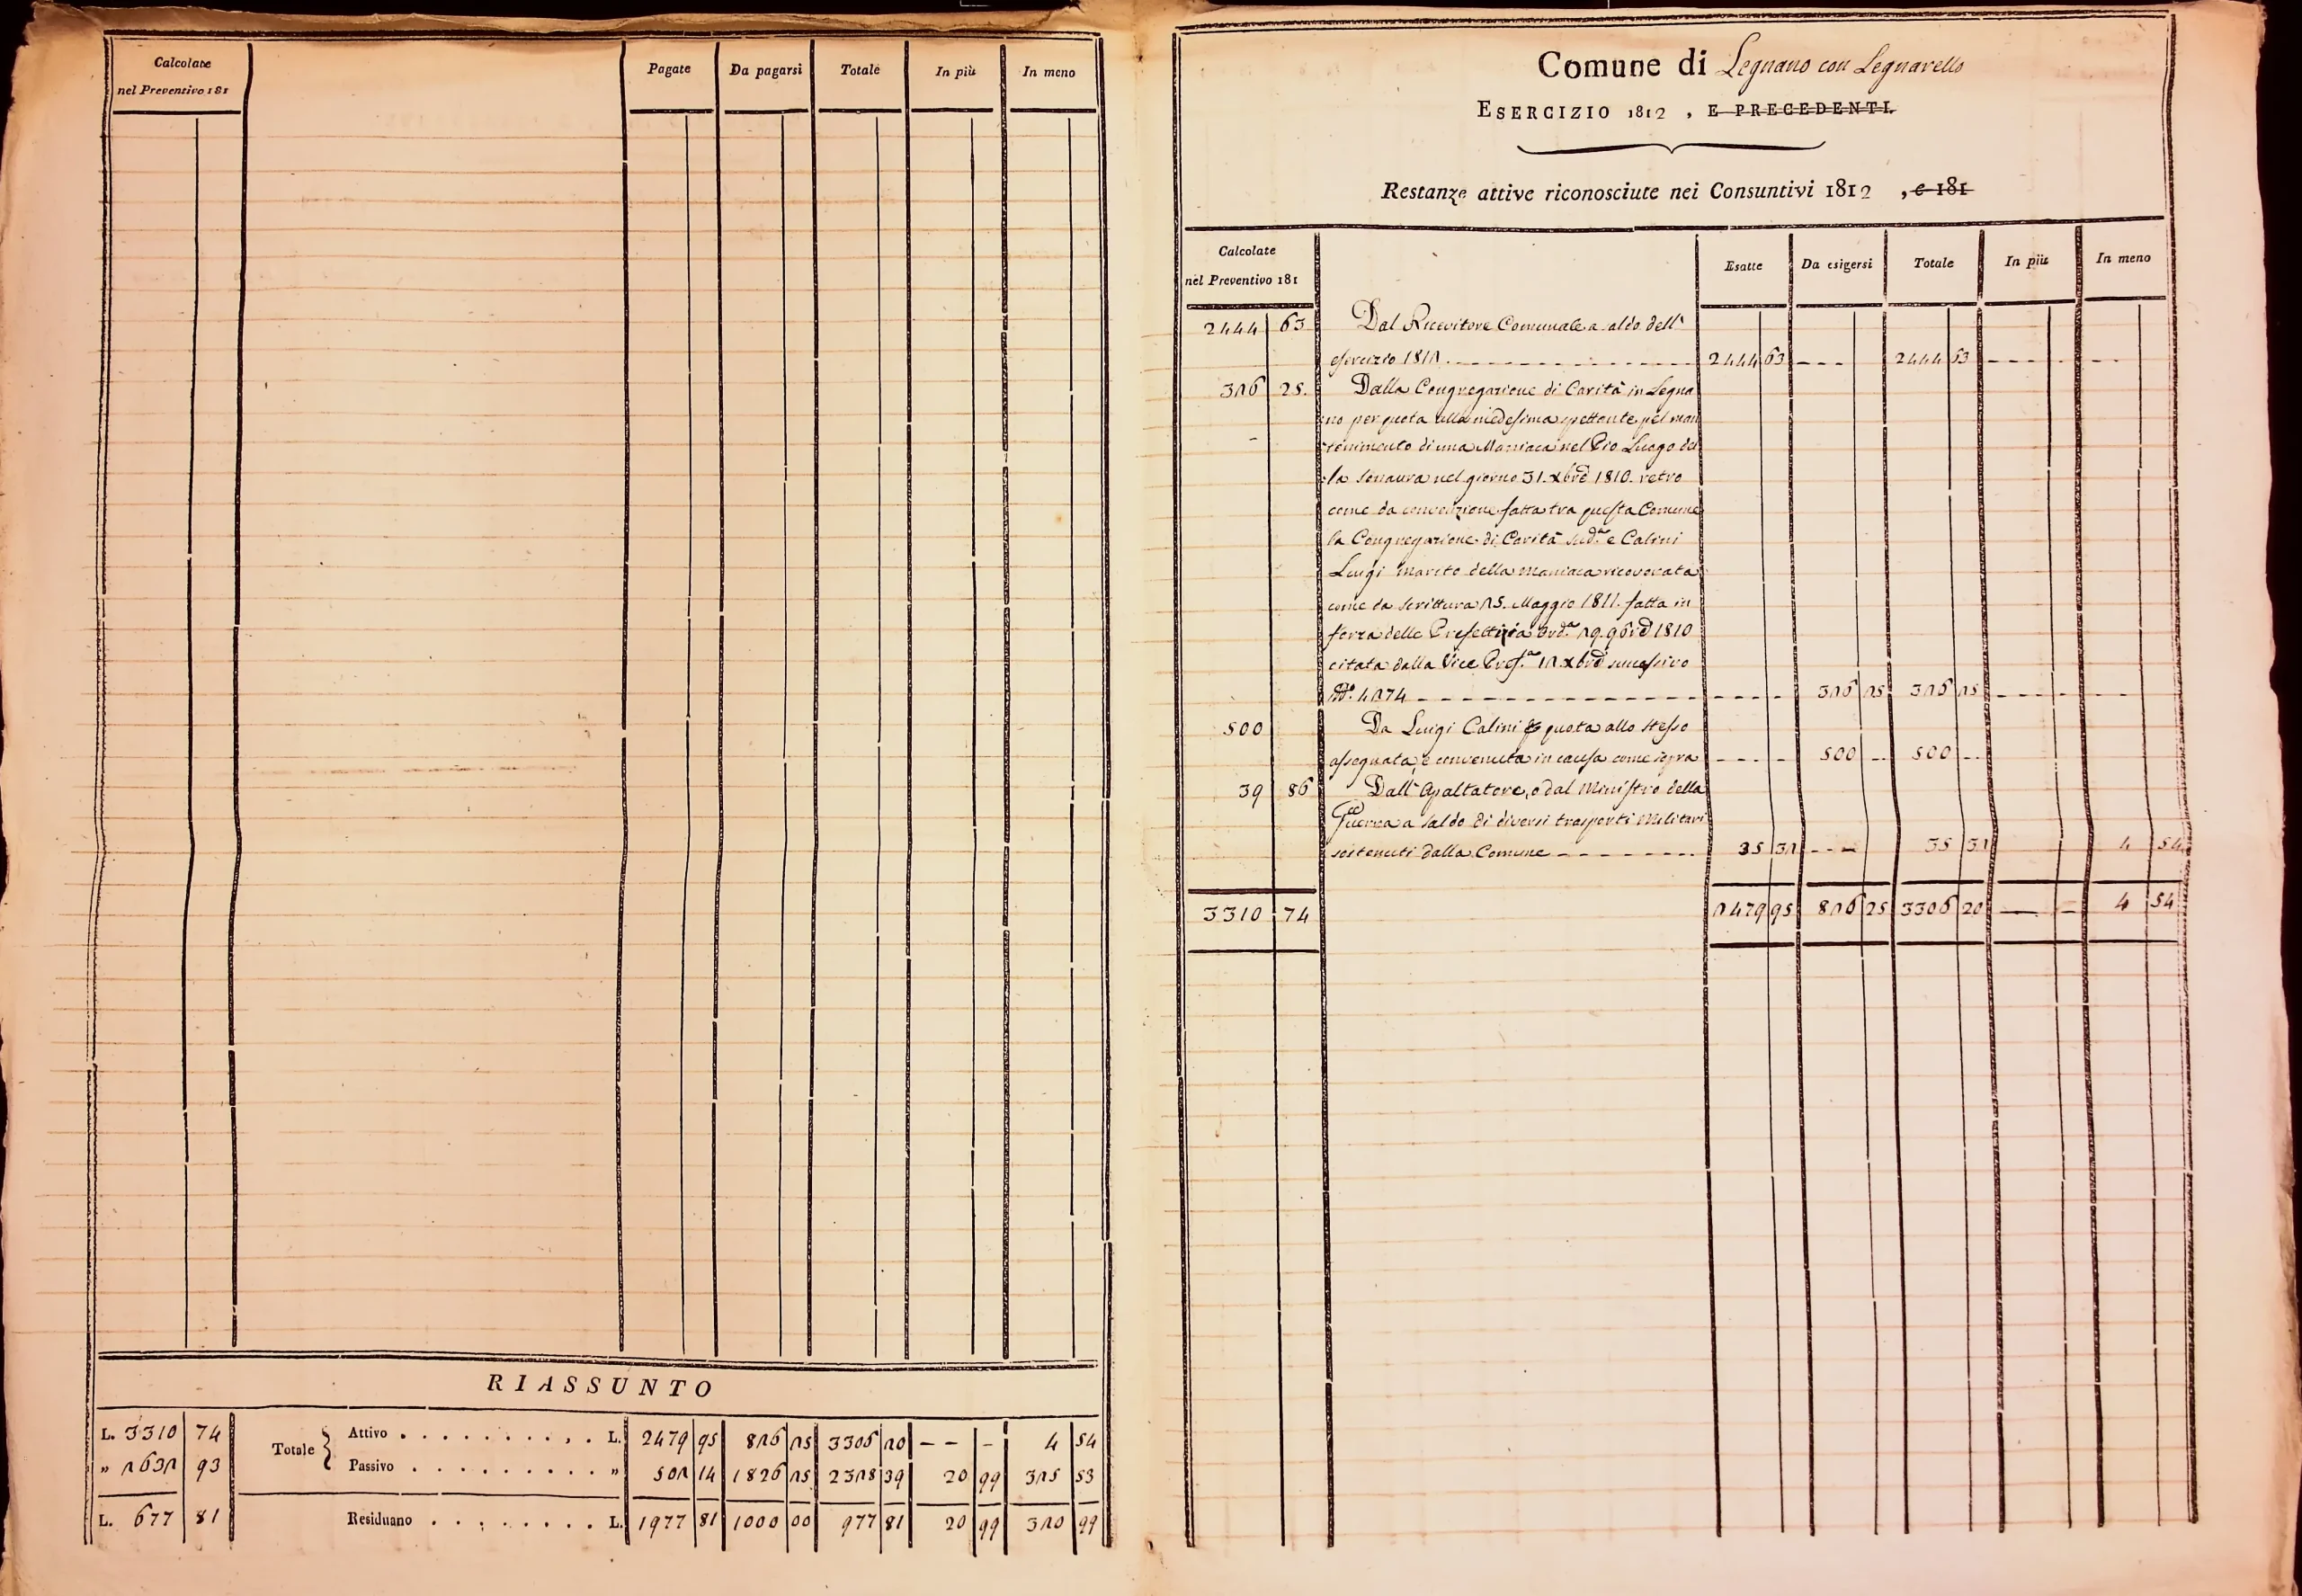 Calcolate
nel Preventivo 181
Pagate Da pagarsi Totale In più In meno
RIASSUNTO
L. 3310 74 Totale Attivo . . . . . . . . . . L. 2479 95 826 25 3306 20 – – – 4 54
» 2632 93 Passivo . . . . . . . . . . » 502 14 1826 25 2328 39 20 99 325 53
L. 677 81 Residuano . . . . . . . . L. 1977 81 1000 00 977 81 20 99 320 99
Comune di Legnano con Legnarello
ESERCIZIO 1812 , E PRECEDENTI.
Restanze attive riconosciute nei Consuntivi 1812 , e 181
Calcolate
nel Preventivo 181
Esatte Da esigersi Totale In più In meno
2444 63 Dal Ricevitore Comunale a saldo dell'
esercizio 1812 2444 63 – – – 2444 63 – – – –
326 25. Dalla Congregazione di Carità in Legna
no per quota alla medesima spettante pel man
tenimento di una Maniaca nel Pio Luogo del
la Senavra nel giorno 31. xbre 1810. retro
come da convenzione fatta tra questa Comune
la Congregazione di Carità sud.a e Calini
Luigi marito della Maniaca ricoverata
come da scrittura 25. Maggio 1811. fatta in
forza delle Prefettizia ord.a 29. 9bre 1810
citata dalla Vice Pref.a 12 xbre successivo
N.° 4274 – – – – 326 25 326 25 – – – –
500 Da Luigi Calini per quota allo stesso
assegnata, e convenuta in causa come sopra – – – – 500 – 500 –
39 86 Dall' Apaltatore, o dal Ministro della
Guerra a saldo di diversi trasporti Militari
sostenuti dalla Comune 35 32 – – – 35 32 4 54
3310 74 2479 95 826 25 3306 20 – – 4 54